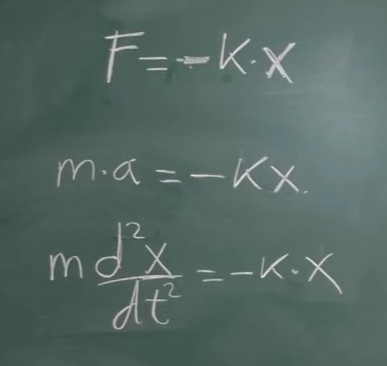 F=-K·X
m·a=-KX.
m d²x/dt² = -K·X